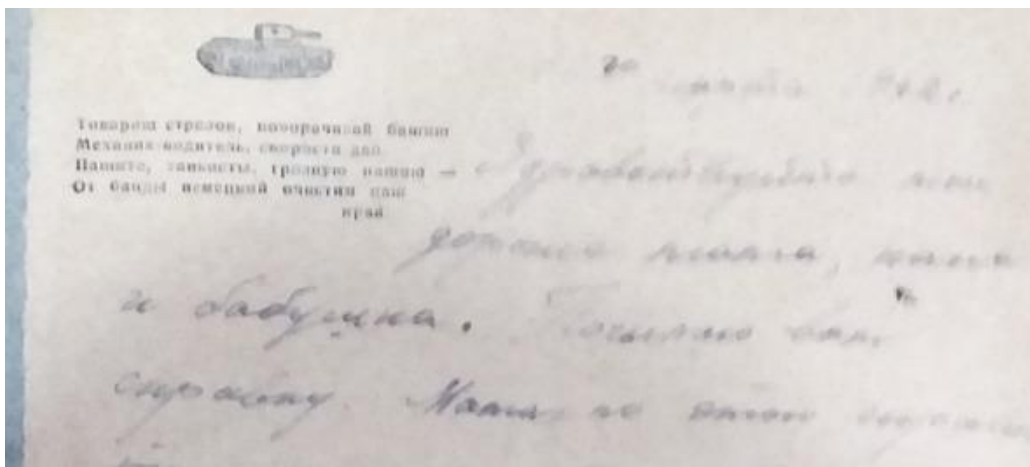 Товарищ стрелок, поворачивай башню
Механик-водитель, скорости дай
Пашите, танкисты, грозную пашню —
От банды немецкой очистим наш
край
Здравствуйте мои
дорогие мама,
и бабушка. Посылаю вам
справку. Мама, по этой